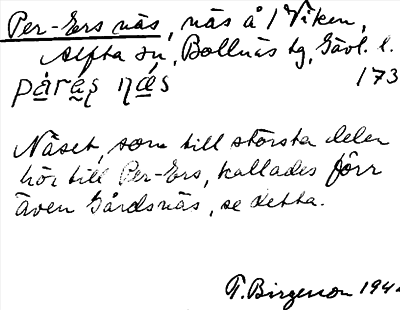 Per-Ers näs, näs å /Viken,
Alfta sn, Bollnäs tg, Gävl. l.
173
Näset, som till största delen
hör till Per-Ers, kallades förr
även Gårdsnäs, se detta.
T. Birgerson 194